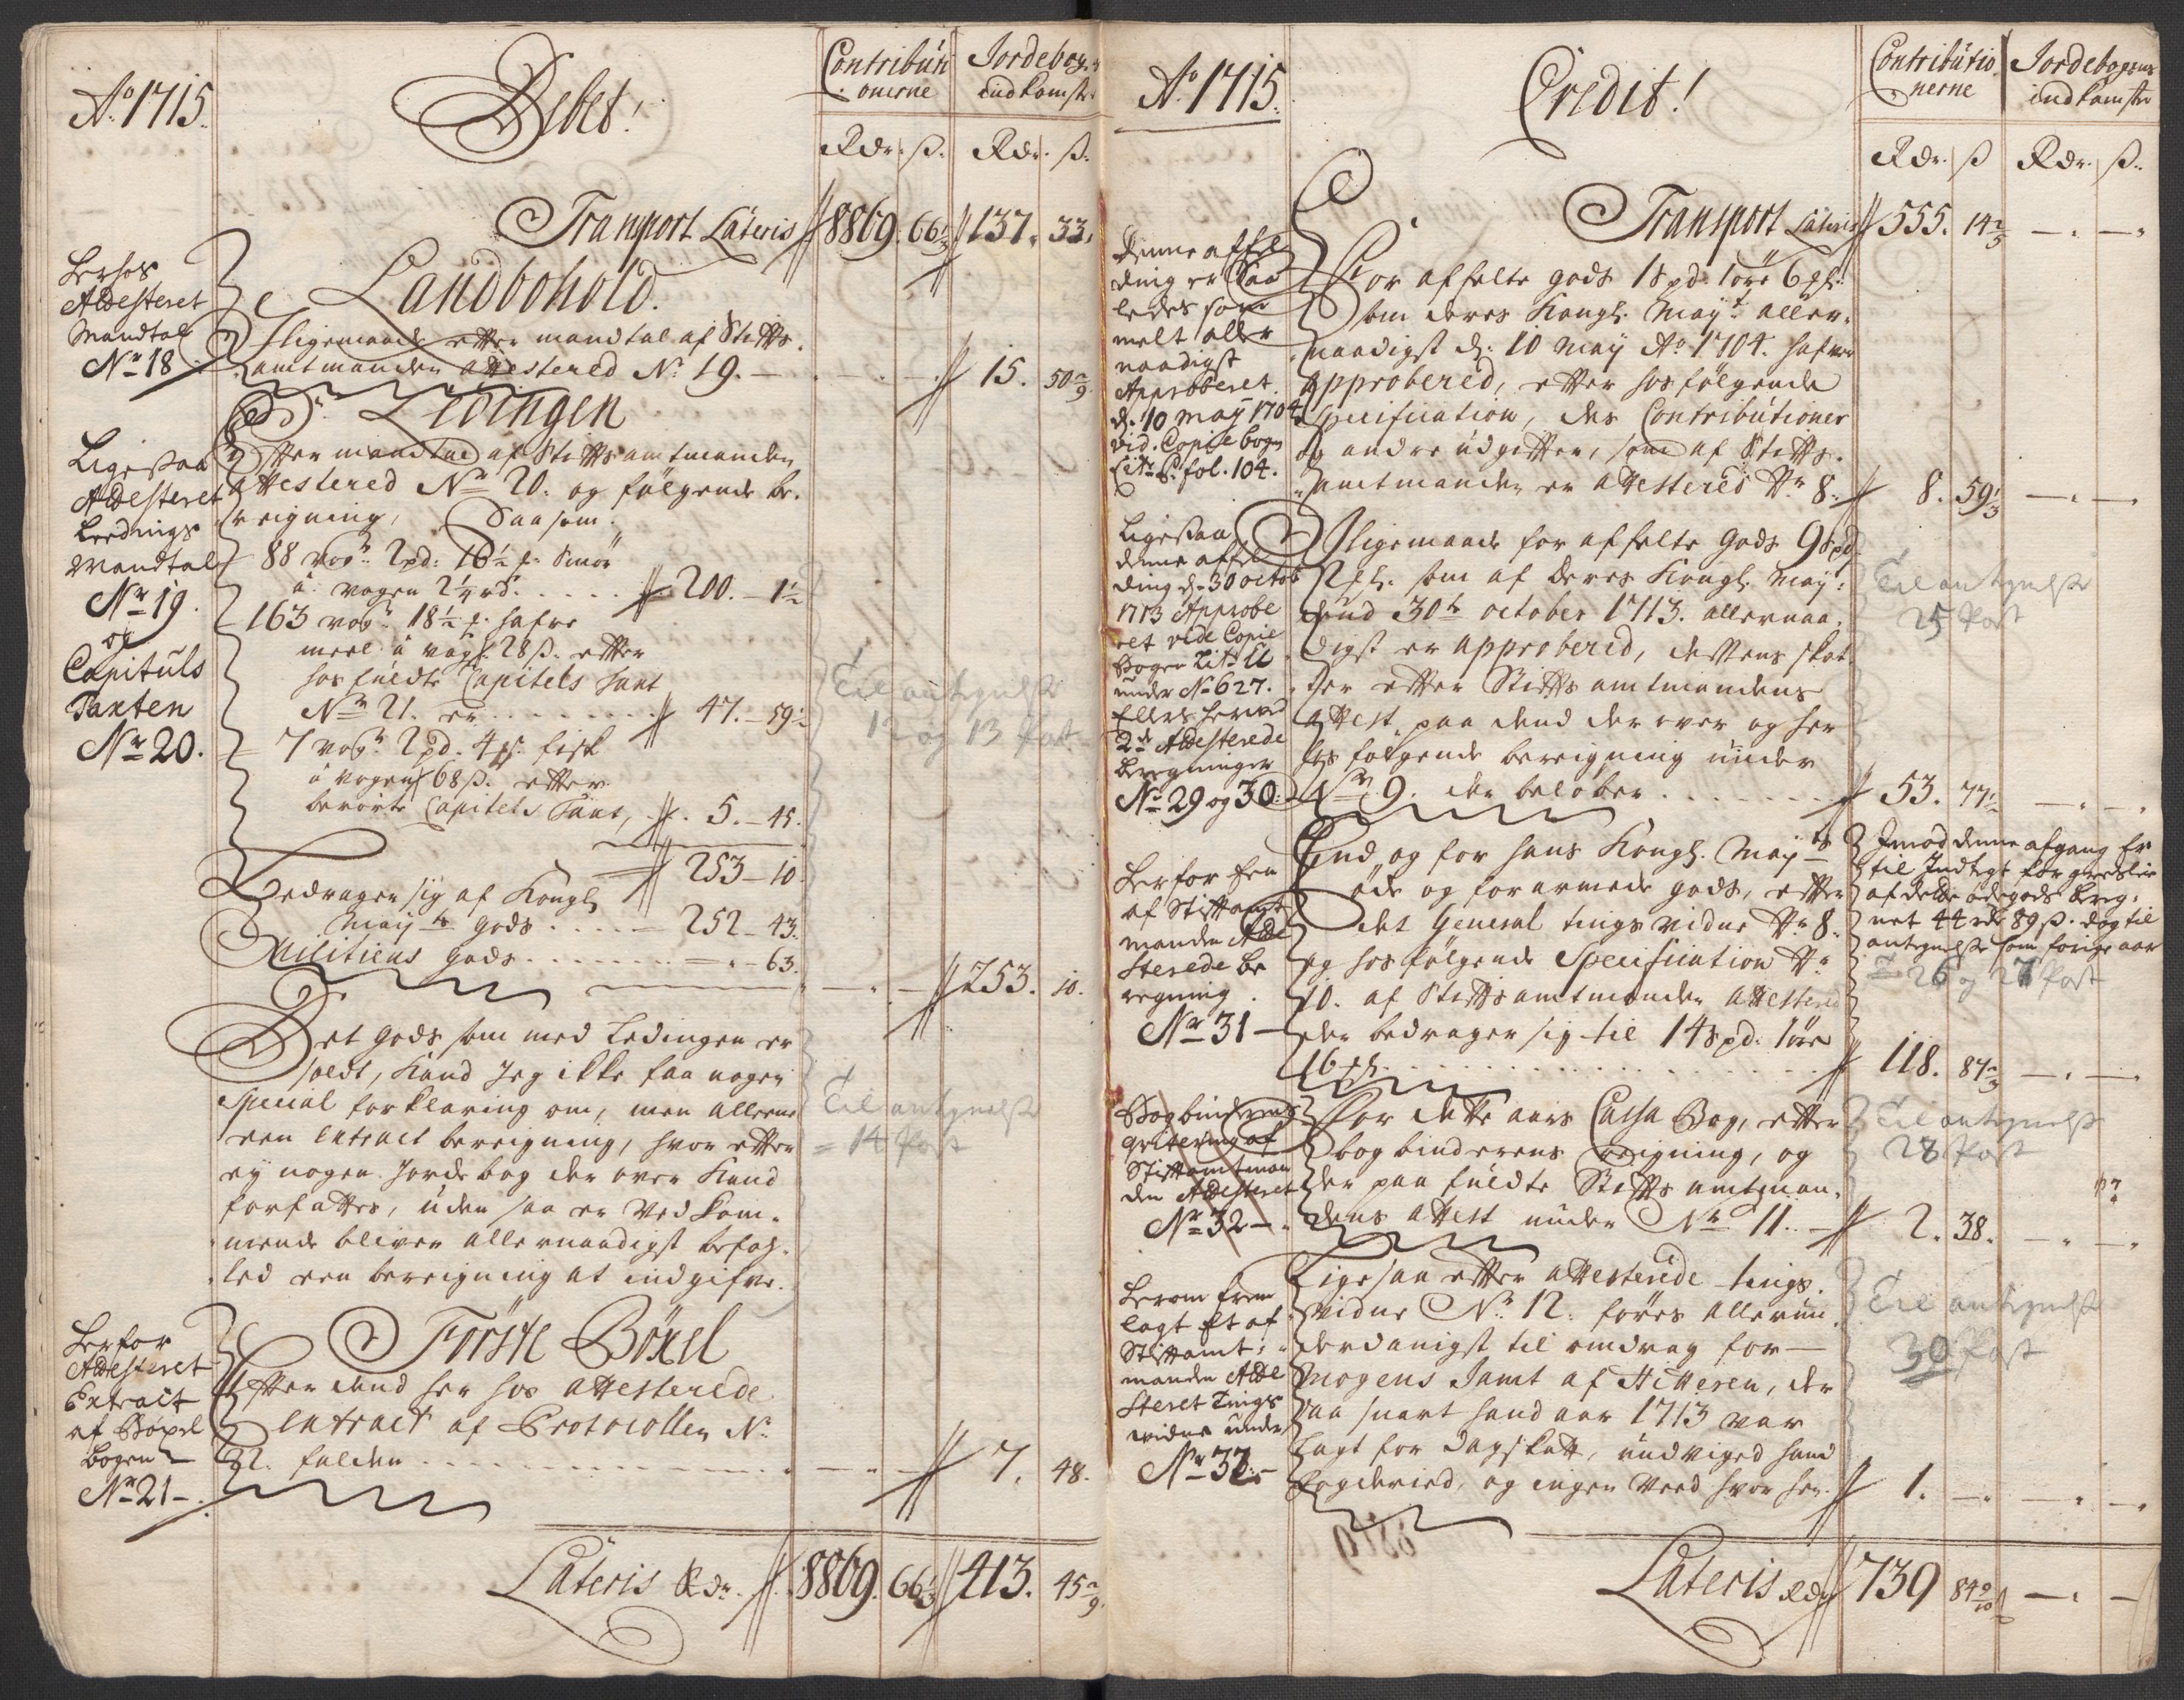 Ao. 1715.
Debet!
Contributi
onerne
Jordebog.
indkomster
Rdr. ß.
Rdr. ß.
Transport Lateris 8869. 66⅓ 137. 33.
Herhos
Attesteret
Mandtal
No 18
Landbohold.
Iligemaade efter mandtal af Stifts
amtmanden attestered No. 19. — 15. 50 2/9
Ledingen
Ligesaa
Attesteret
Lednings
Mandtal
No 19.
og
Capituls
Taxten
No 20.
Efter mandtal af Stiftsamtmanden
attestered No 20. og følgende be-
reigning, Saasom.
88 vog: 2 pd: 16½ Smör
à vogen 2¼ rd. 200. – 1½
163 vog: 18½ hafre
meel à vog 28 ß. efter
hosfuldte Capitels taxt
No 21. er 47. – 59½
7 vog: 2 pd. 4 fisk
à vogen 68 ß. efter
berørte Capitels Taxt, 5. – 45.
253 – 10
Bedragen sig af Kongl
May ts gods 252 – 43.
Militiens gods – 63.
253. 10.
Til antegnelse
12 og 13 Post
Det gods som med Ledingen er
soldt, Kand Jeg ikke faa nogen
Special forklaring om, men alleene
een extract bereigning, hvor efter
ey nogen Jordebog der over Kand
forfattes, uden saa er Ved kom-
mende bliver allernaadigst befah-
led een bereigning at indgifve.
Til antegnelse
14 Post
Herfor
Attesteret
Extract
af Böxel
bogen
No 21 –
Förste Böxel
Efter dend her hos attesterede
extract af Protocollen No.
22. falden 7. 48.
Lateris Rdr. 8869. 66⅓ 413. 45 2/9
Ao. 1715.
Credit!
Contributio
nerne
Jordebogens
indkomster
Rdr. ß
Rdr. ß.
Transport Lateris 555. 14 2/5 — —
Denne affel
ding er Saa
ledes som
melt aller
naadigst
Approberet
d. 10 May 1704
vid. Copie bogen
fol. 104.
For affelte gods 1 spd. 1 øre 6
som deres Kongl. Mayt. aller-
naadigst d: 10 May Ao 1704. hafver
approbered, efter hos følgende
Specification, des Contributioner
og andre udgifter, som af Stifts
amtmanden er attestered No 8. 8. 59⅓ — —
Ligesaa
denne affel
ding d. 30 octob
1713 Approbe
ret vide Copie
Bogen Lit
under No 627.
Ellers herved
2de Attesterede
beregninger
No 29 og 30.
Iligemaade for affelte gods 9 spd
2 som af Deres Kongl. May:
dend 30te october 1713. allernaa-
digst er approbered, dessens skat
ter efter Stiftsamtmandens
attest paa dend der over og her
hos følgende bereigning under
No 9. der beløber 53. 77½ — —
Til antegnelse
25 Post
Herfor een
af Stiftamt
manden Atte
sterede be
regning
No 31 –
End og for hans Kongl. May ts
øde og forarmede gods, efter
det General tingsvidne No 8.
og hos følgende Specification No
10. af Stiftsamtmanden attestered
der bedrager sig til 14 spd. 1 øre
16 118. 87 — —
Imod denne afgang er
til Indtegt for græsleie
af dette ødegods bereg:
net 44 rdr 89 ß. dog til
antegnelse som forige aar
26 og 27 Post
Bogbinderens
qvitering af
Stiftamtman
den Attesteret
No 32 –
For dette aars Cassa Bog, efter
bogbinderens reigning, og
der paa fuldte Stiftsamtman-
dens attest under No 11. 2. 38. — —
Til antegnelse
28 Post
Herom frem
lagt Et af
Stiftamt:
manden Atte
steret Tings
vidne under
No 33.
Ligesaa efter attesterede tings
vidne No. 12. føres allerun-
derdanigst til omdrag for —
Mogens Jamt af Hitteren, der
saa snart hand aar 1713 var
lagt for dagskatt, undviged hand
fogderied, og ingen Veed hvor hen. 1. — — —
Til antegnelse
30 Post
Lateris Rdr 739 84 9/10 — —